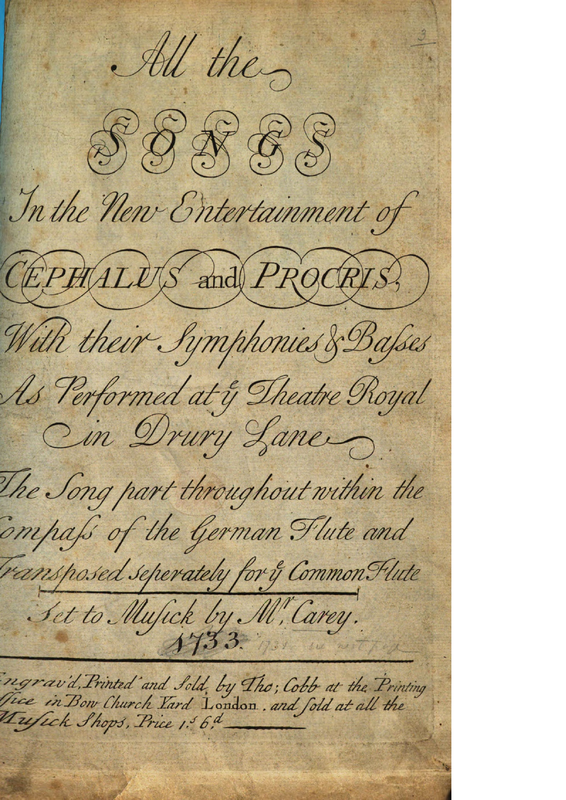 3
All the
SONGS
In the New Entertainment of
CEPHALUS and PROCRIS;
With their Symphonies & Baſses
As Performed at yͤ Theatre Royal
in Drury Lane
The Song part throughout within the
Compaſs of the German Flute and
Transposed seperately for yͤ Common Flute
Set to Muſick by Mʳ. Carey.
1733.
Engrav'd, Printed and Sold, by Tho; Cobb at the Printing
Office in Bow Church Yard London. and ſold at all the
Muſick Shops, Price 1.ˢ 6.ᵈ